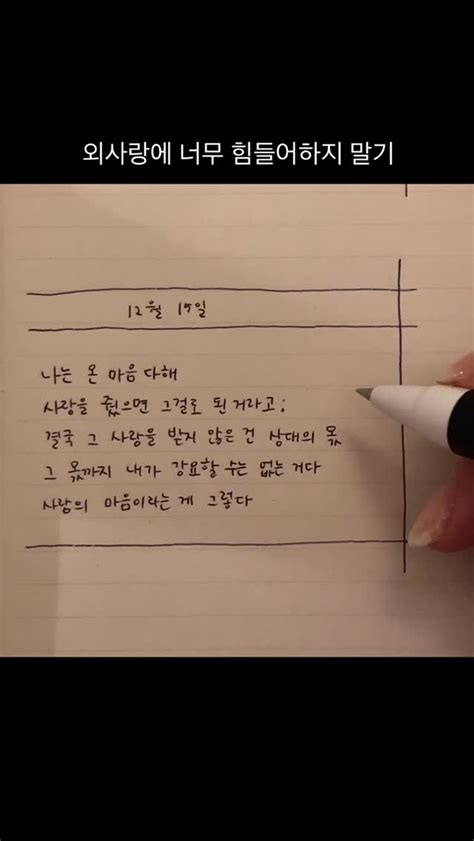 외사랑에 너무 힘들어하지 말기
12월 15일
나는 온 마음 다해
사랑을 줬으면 그걸로 된 거라고;
결국 그 사랑을 받지 않은 건 상대의 몫
그 몫까지 내가 강요할 수는 없는 거다
사람의 마음이라는 게 그렇다